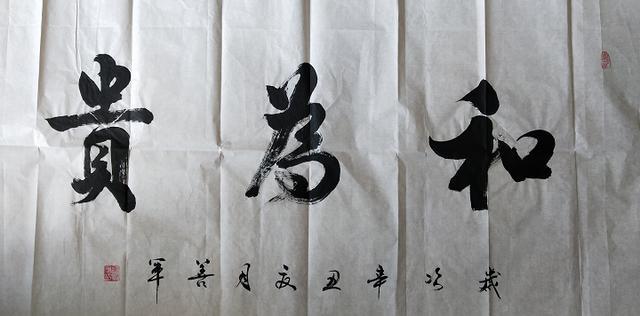 和為貴
歲次辛丑夏月善軍